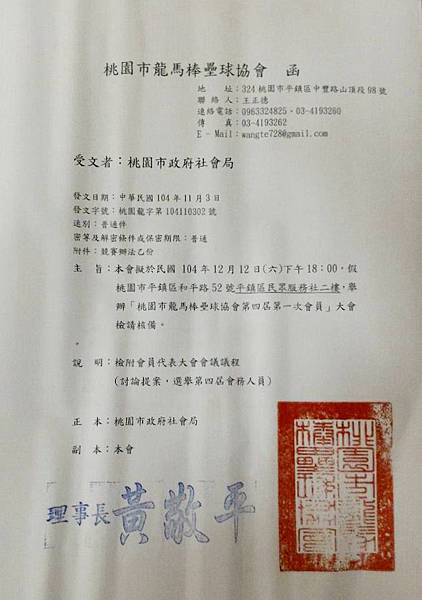 桃園市龍馬棒壘球協會　函
地　　址：324桃園市平鎮區中豐路山頂段98號
聯 絡 人：王正德
連絡電話：0963324825、03-4193260
傳　　真：03-4193262
E - Mail：wangte728@gmail.com
受文者：桃園市政府社會局
發文日期：中華民國104年11月3日
發文字號：桃園龍字第104110302號
速別：普通件
密等及解密條件或保密期限：普通
附件：競賽辦法乙份
主　旨：本會擬於民國 104年12月12日(六)下午18:00，假
桃園市平鎮區和平路52號平鎮區民眾服務社二樓，舉
辦「桃園市龍馬棒壘球協會第四屆第一次會員」大會
檢請核備。
說　明：檢附會員代表大會會議議程
(討論提案，選舉第四屆會務人員)
正　本：桃園市政府社會局
副　本：本會
理事長 黃敬平